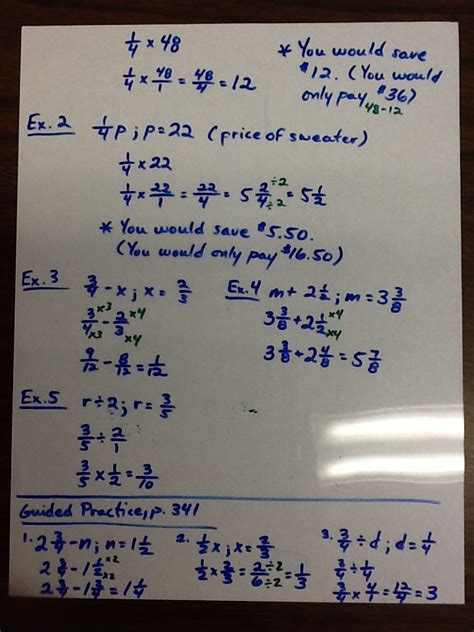 1/4 × 48
1/4 × 48/1 = 48/4 = 12
* You would save
$12. (You would
only pay $36)
48-12
Ex. 2 1/4 p ; p = 22 (price of sweater)
1/4 × 22
1/4 × 22/1 = 22/4 = 5 2/4 ÷2/÷2 = 5 1/2
* You would save $5.50.
(You would only pay $16.50)
Ex. 3 3/4 - x ; x = 2/3
3/4 ×3/×3 - 2/3 ×4/×4
9/12 - 8/12 = 1/12
Ex. 4 m + 2 1/2 ; m = 3 3/8
3 3/8 + 2 1/2 ×4/×4
3 3/8 + 2 4/8 = 5 7/8
Ex. 5 r ÷ 2 ; r = 3/5
3/5 ÷ 2/1
3/5 × 1/2 = 3/10
Guided Practice, p. 341
1. 2 3/4 - n ; n = 1 1/2
2 3/4 - 1 1/2 ×2/×2
2. 1/2 x ; x = 2/3
1/2 × 2/3 = 2/6 ÷2/÷2 = 1/3
3. 3/4 ÷ d ; d = 1/4
3/4 ÷ 1/4
3/4 × 4/1 = 12/4 = 3